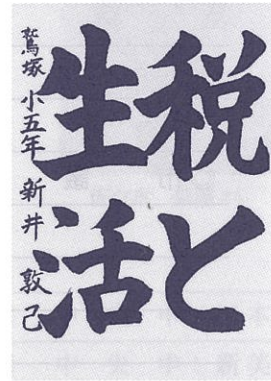 税と
生活
鷲塚 小五年 新井 敦己